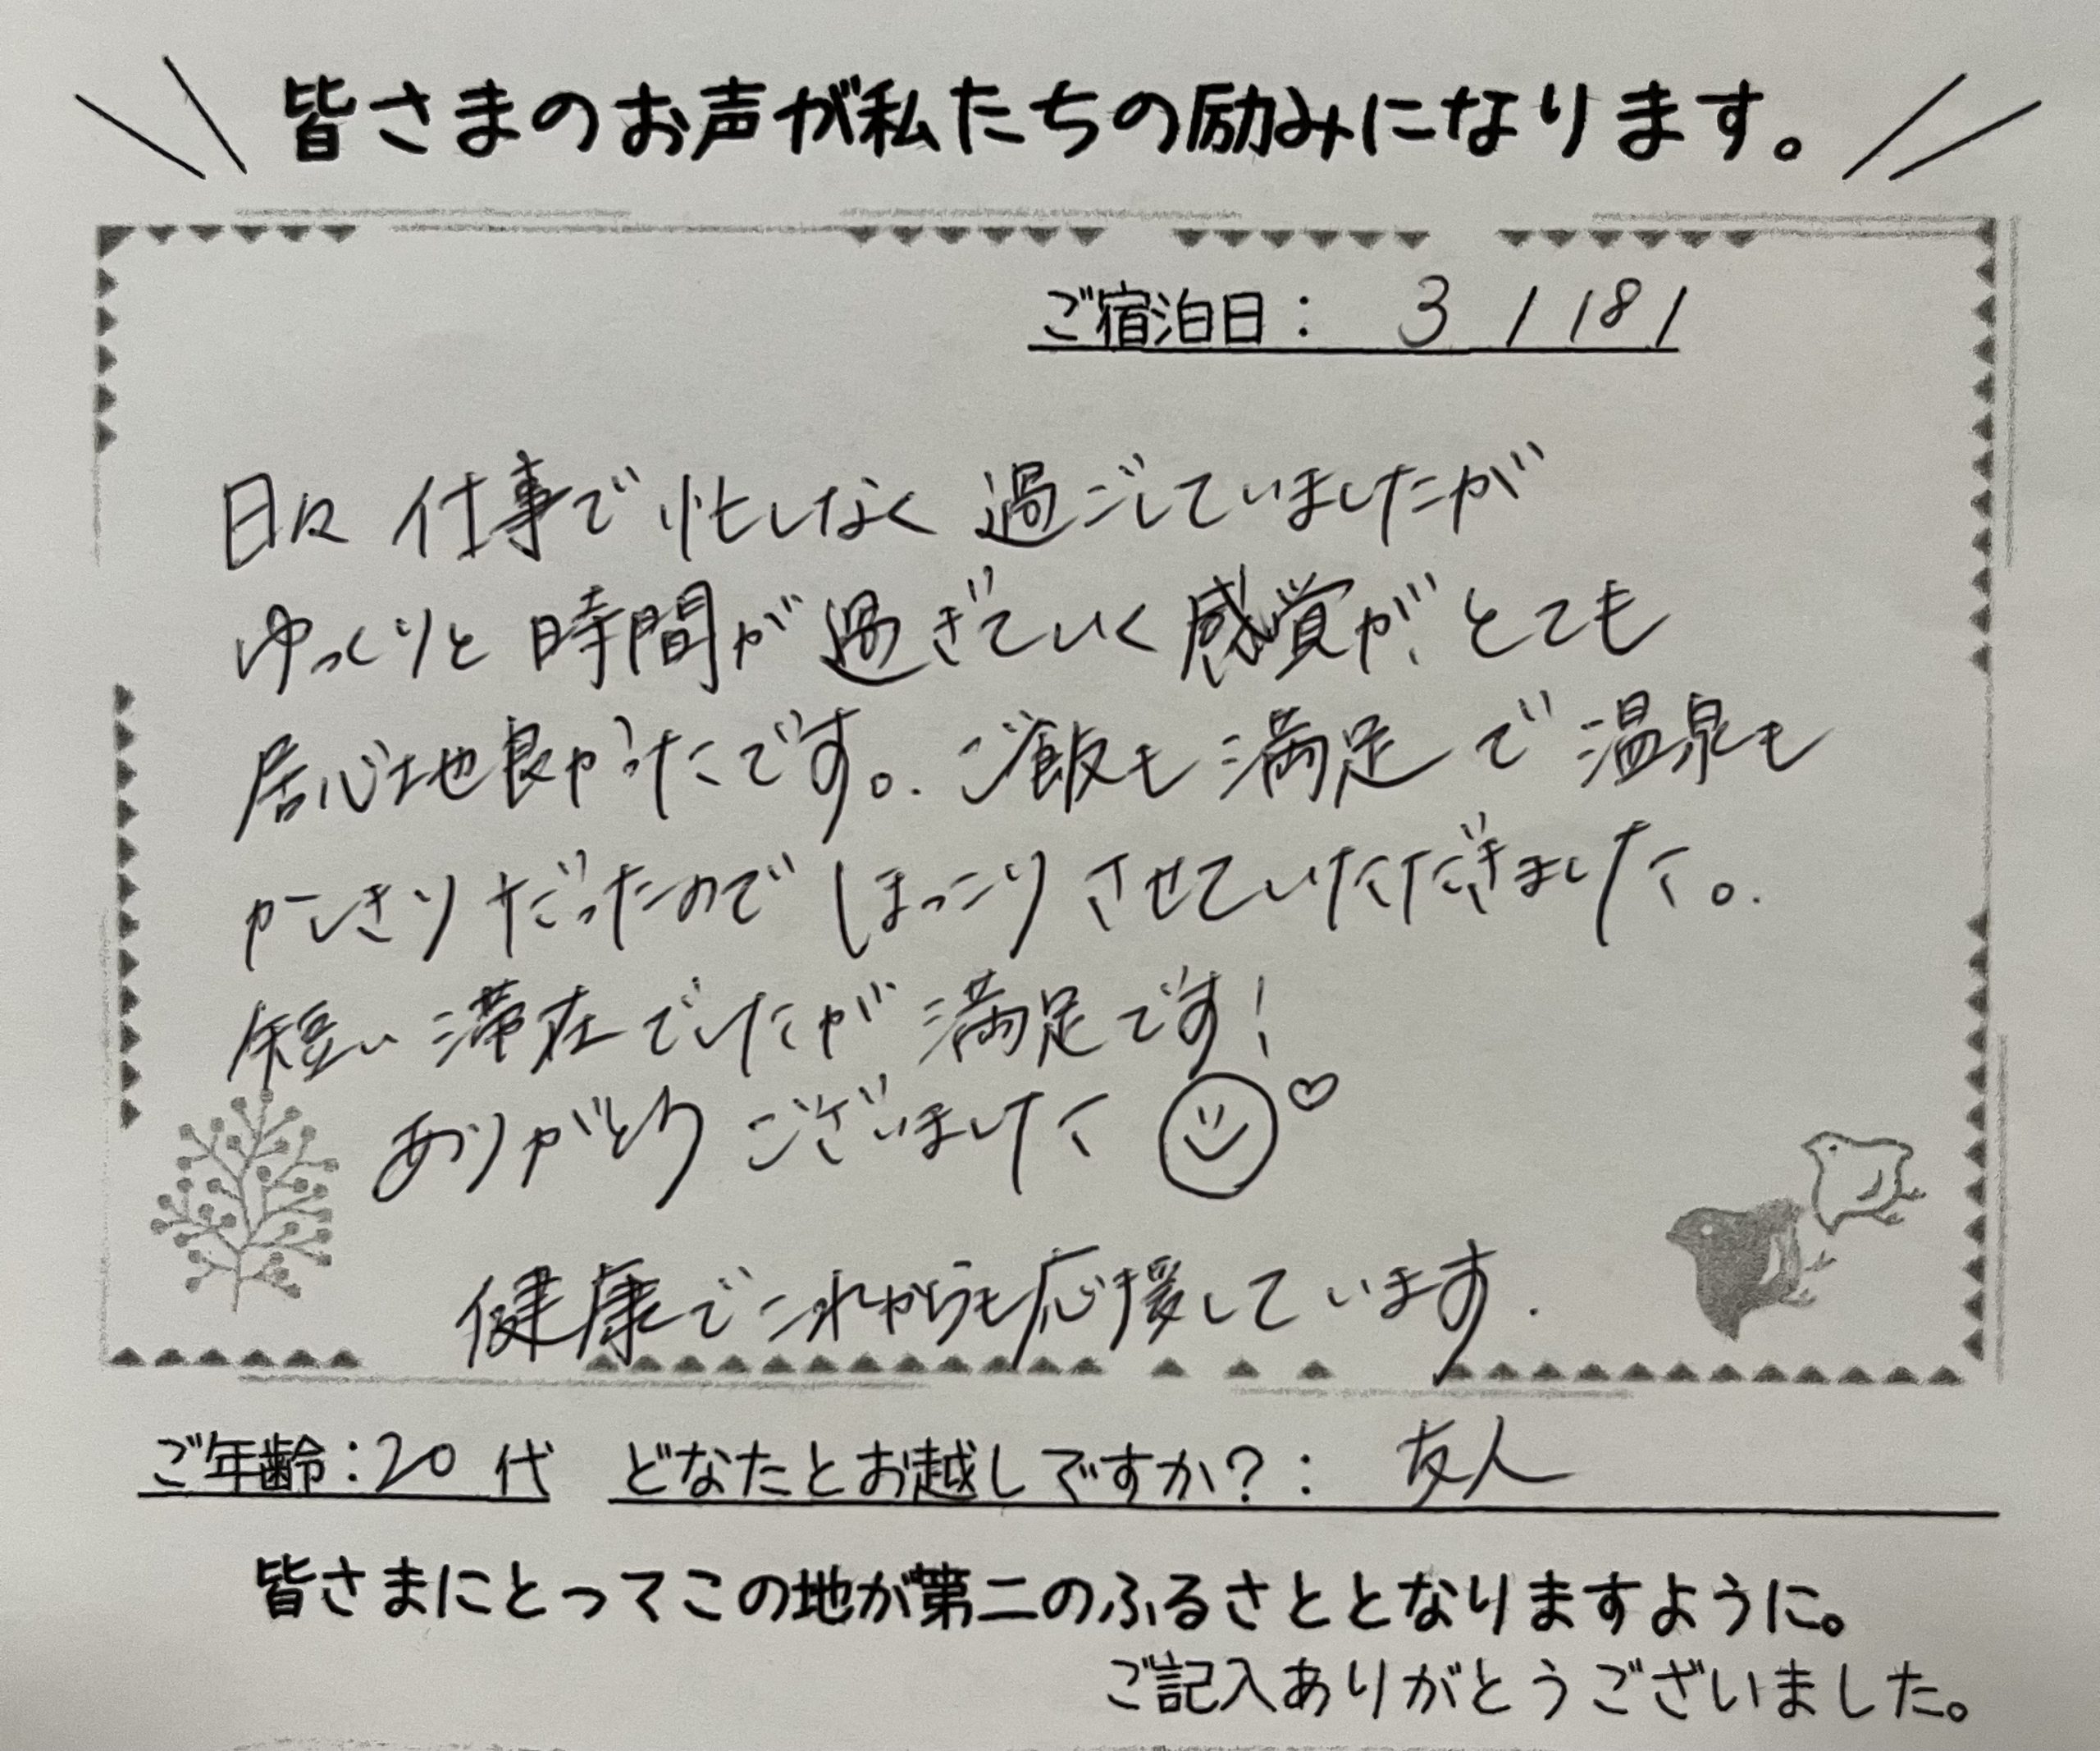 皆さまのお声が私たちの励みになります。
ご宿泊日： 3 / 18 /
日々 仕事で忙しなく 過ごしていましたが
ゆっくりと 時間が過ぎていく感覚が、とても
居心地良かったです。ご飯も満足で温泉も
かしきりだったので ほっこりさせていただきました。
短い滞在でしたが満足です!
ありがとうございました
健康でこれからも応援しています.
ご年齢：20代 どなたとお越しですか？： 友人
皆さまにとってこの地が第二のふるさととなりますように。
ご記入ありがとうございました。